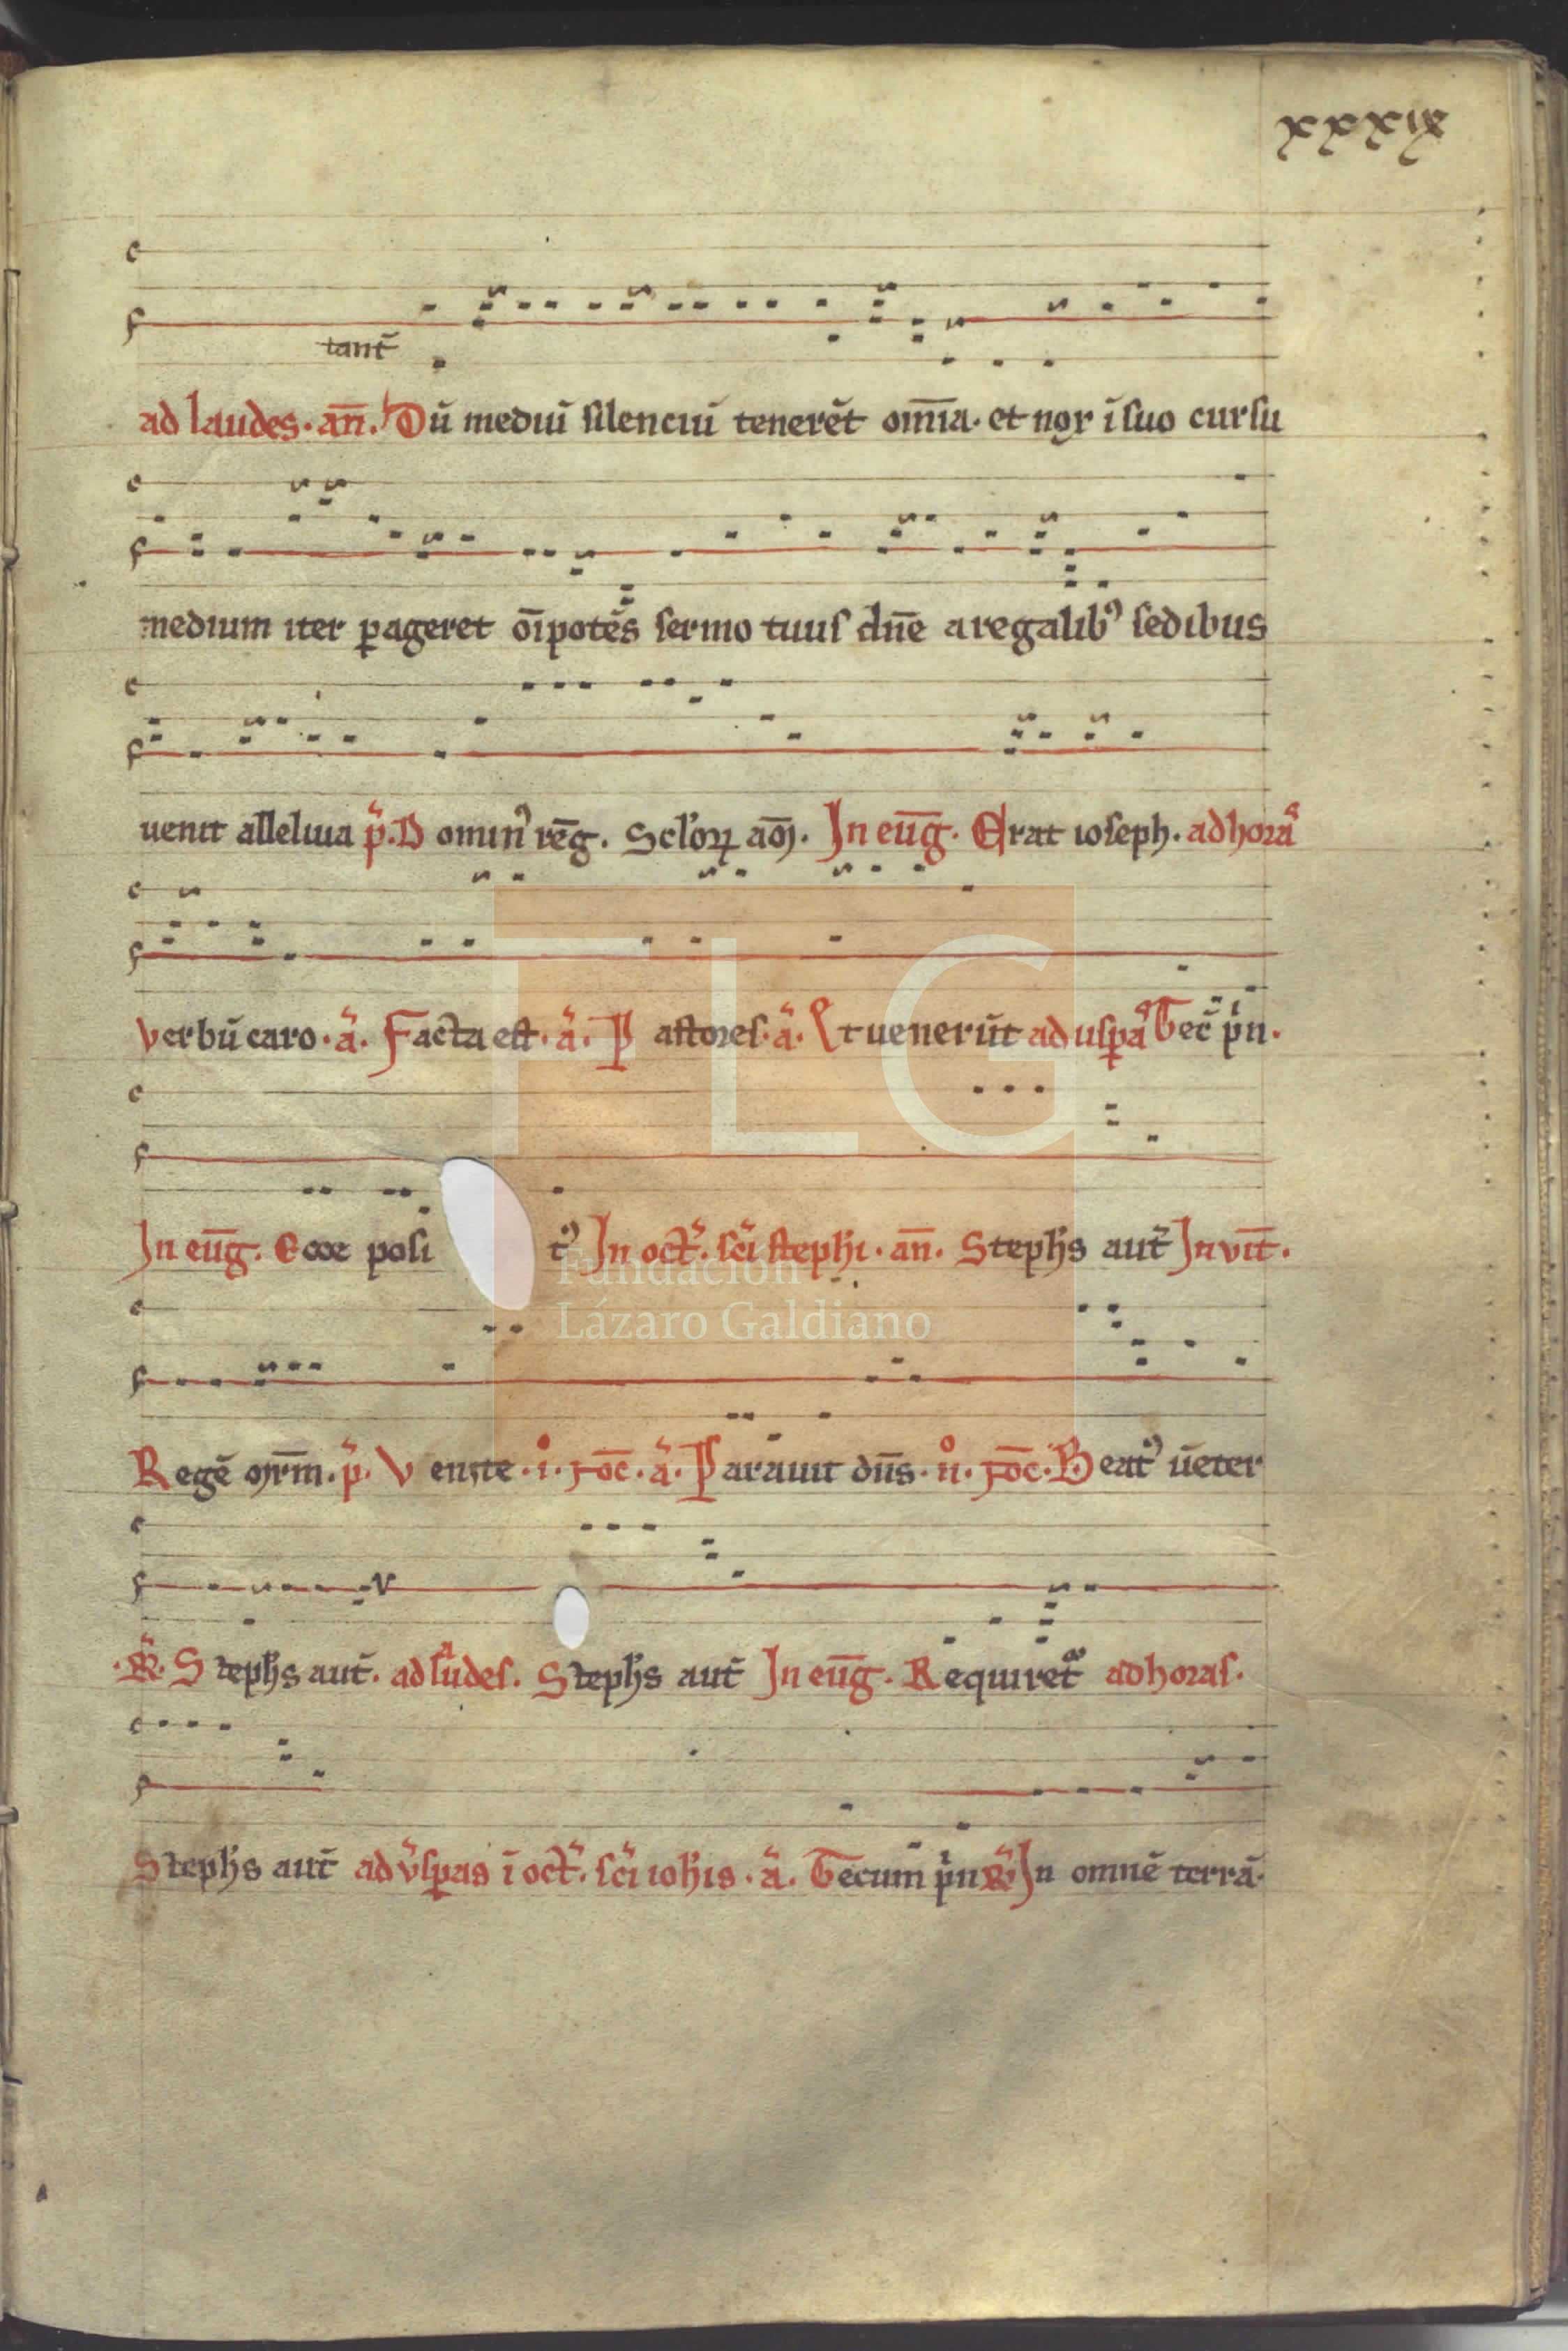 xxxix
tant̃
ad laudes. an̄. Dū mediuī silenciū tenerēt om̄ia. et nox ī suo cursu
medium iter ꝑageret oīpotēs sermo tuus dn̄e a regalibꝰ sedibus
uenit alleluia p̃. D ominꝰ rēg. Sclꝝ am̄. In eūg. Erat ioseph. ad horas
Verbū caro. ã. Facta est. ã. P astores. ã. Et uenerūt ad usꝑas Tec̄ pͥn.
In eūg. Ecce posi tꝰ In oct̃. sc̄i steph̄i. an̄. Steph̄s aut̃ In vīt.
Regē mr̄m. p̃. V enite. i. noc̄. ã. Parauit dn̄s. ii. noc̄. Beatꝰ uēter
℟. Steph̄s aut̃. ad laudes. Steph̄s aut̃ In eūg. Requiret᷑ ad horas.
Steph̄s aut̃ ad v̄sꝑas ī oct̃. sc̄i ioh̄is. ã. Tecum pͥn ℟. In omnē terrā.
Fundación
Lázaro Galdiano
FLG